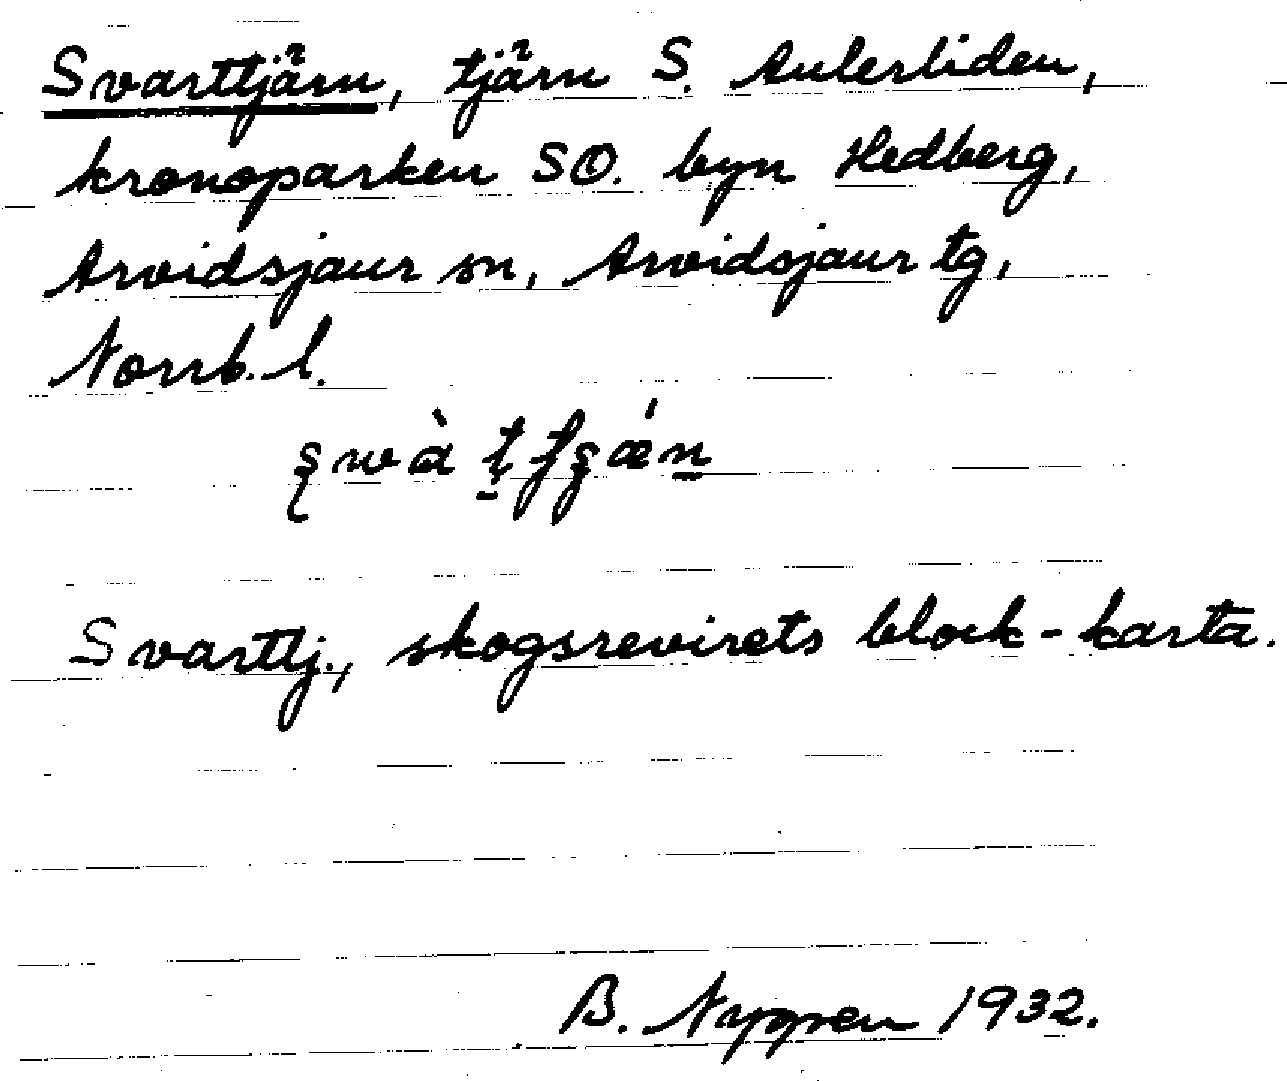 Svarttjärn, tjärn S. Aulerliden,
kronoparken SO. byn Hedberg,
Arvidsjaur sn, Arvidsjaur tg,
Norrb. l.
Svarttj., skogsrevirets block-karta.
B. Nygren 1932.